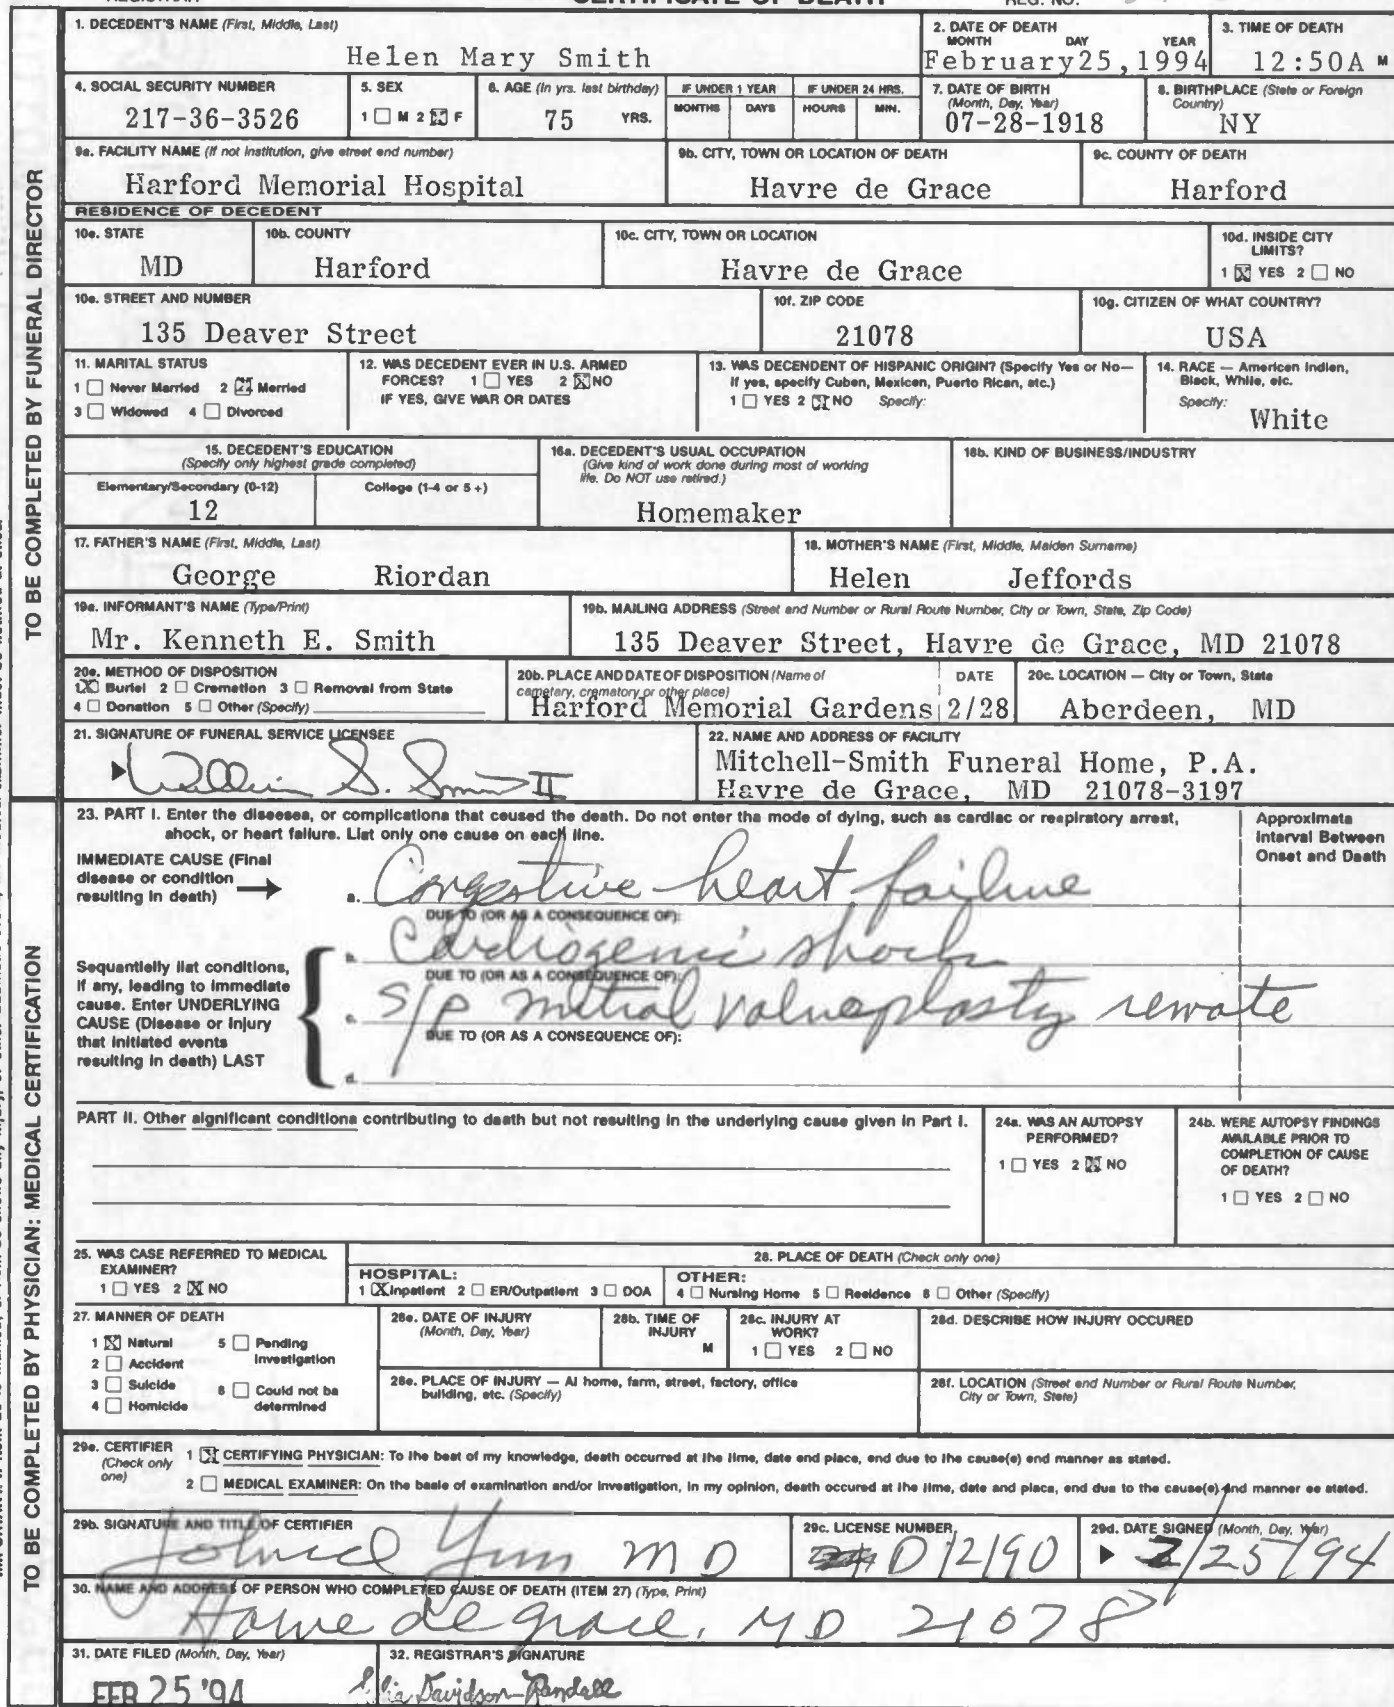 CERTIFICATE OF DEATH
1. DECEDENT'S NAME (First, Middle, Last)
Helen Mary Smith
2. DATE OF DEATH
MONTH DAY YEAR
February25,1994
3. TIME OF DEATH
12:50A M
4. SOCIAL SECURITY NUMBER
217-36-3526
5. SEX
1 ☐ M 2 ☒ F
6. AGE (In yrs. last birthday)
75 YRS.
IF UNDER 1 YEAR
MONTHS DAYS
IF UNDER 24 HRS.
HOURS MIN.
7. DATE OF BIRTH
(Month, Day, Year)
07-28-1918
8. BIRTHPLACE (State or Foreign
Country)
NY
9a. FACILITY NAME (If not institution, give street and number)
Harford Memorial Hospital
9b. CITY, TOWN OR LOCATION OF DEATH
Havre de Grace
9c. COUNTY OF DEATH
Harford
RESIDENCE OF DECEDENT
10a. STATE
MD
10b. COUNTY
Harford
10c. CITY, TOWN OR LOCATION
Havre de Grace
10d. INSIDE CITY
LIMITS?
1 ☒ YES 2 ☐ NO
10e. STREET AND NUMBER
135 Deaver Street
10f. ZIP CODE
21078
10g. CITIZEN OF WHAT COUNTRY?
USA
11. MARITAL STATUS
1 ☐ Never Married 2 ☒ Married
3 ☐ Widowed 4 ☐ Divorced
12. WAS DECEDENT EVER IN U.S. ARMED
FORCES? 1 ☐ YES 2 ☒ NO
IF YES, GIVE WAR OR DATES
13. WAS DECENDENT OF HISPANIC ORIGIN? (Specify Yes or No—
If yes, specify Cuban, Mexican, Puerto Rican, etc.)
1 ☐ YES 2 ☒ NO Specify:
14. RACE — American Indien,
Black, White, etc.
Specify:
White
15. DECEDENT'S EDUCATION
(Specify only highest grade completed)
Elementary/Secondary (0-12)
12
College (1-4 or 5+)
16a. DECEDENT'S USUAL OCCUPATION
(Give kind of work done during most of working
life. Do NOT use retired.)
Homemaker
16b. KIND OF BUSINESS/INDUSTRY
17. FATHER'S NAME (First, Middle, Last)
George Riordan
18. MOTHER'S NAME (First, Middle, Maiden Surname)
Helen Jeffords
19a. INFORMANT'S NAME (Type/Print)
Mr. Kenneth E. Smith
19b. MAILING ADDRESS (Street and Number or Rural Route Number, City or Town, State, Zip Code)
135 Deaver Street, Havre de Grace, MD 21078
20a. METHOD OF DISPOSITION
1 ☒ Burial 2 ☐ Cremation 3 ☐ Removal from State
4 ☐ Donation 5 ☐ Other (Specify)
20b. PLACE AND DATE OF DISPOSITION (Name of
cemetary, crematory or other place)
Harford Memorial Gardens
DATE
2/28
20c. LOCATION — City or Town, State
Aberdeen, MD
21. SIGNATURE OF FUNERAL SERVICE LICENSEE
William S. Smith II
22. NAME AND ADDRESS OF FACILITY
Mitchell-Smith Funeral Home, P.A.
Havre de Grace, MD 21078-3197
TO BE COMPLETED BY FUNERAL DIRECTOR
23. PART I. Enter the diseases, or complications that caused the death. Do not enter the mode of dying, such as cardiac or respiratory arrest,
shock, or heart failure. List only one cause on each line.
Approximate
Interval Between
Onset and Death
IMMEDIATE CAUSE (Final
disease or condition
resulting in death) →
a. Congestive heart failure
DUE TO (OR AS A CONSEQUENCE OF):
b. Cardiogenic shock
DUE TO (OR AS A CONSEQUENCE OF):
c. S/p mitral valvuoplasty remote
DUE TO (OR AS A CONSEQUENCE OF):
d.
Sequentially list conditions,
if any, leading to immediate
cause. Enter UNDERLYING
CAUSE (Disease or injury
that initiated events
resulting in death) LAST
PART II. Other significant conditions contributing to death but not resulting in the underlying cause given in Part I.
24a. WAS AN AUTOPSY
PERFORMED?
1 ☐ YES 2 ☒ NO
24b. WERE AUTOPSY FINDINGS
AVAILABLE PRIOR TO
COMPLETION OF CAUSE
OF DEATH?
1 ☐ YES 2 ☐ NO
25. WAS CASE REFERRED TO MEDICAL
EXAMINER?
1 ☐ YES 2 ☒ NO
26. PLACE OF DEATH (Check only one)
HOSPITAL:
1 ☒ Inpatient 2 ☐ ER/Outpatient 3 ☐ DOA
OTHER:
4 ☐ Nursing Home 5 ☐ Residence 6 ☐ Other (Specify)
27. MANNER OF DEATH
1 ☒ Natural 5 ☐ Pending
Investigation
2 ☐ Accident
3 ☐ Suicide 6 ☐ Could not be
4 ☐ Homicide determined
28a. DATE OF INJURY
(Month, Day, Year)
28b. TIME OF
INJURY
M
28c. INJURY AT
WORK?
1 ☐ YES 2 ☐ NO
28d. DESCRIBE HOW INJURY OCCURED
28e. PLACE OF INJURY — At home, farm, street, factory, office
building, etc. (Specify)
28f. LOCATION (Street and Number or Rural Route Number,
City or Town, State)
29a. CERTIFIER
(Check only
one)
1 ☒ CERTIFYING PHYSICIAN: To the best of my knowledge, death occurred at the time, date and place, and due to the cause(s) and manner as stated.
2 ☐ MEDICAL EXAMINER: On the basis of examination and/or investigation, in my opinion, death occured at the time, date and place, and due to the cause(s) and manner as stated.
29b. SIGNATURE AND TITLE OF CERTIFIER
Yun MD
29c. LICENSE NUMBER
D12190
29d. DATE SIGNED (Month, Day, Year)
2/25/94
30. NAME AND ADDRESS OF PERSON WHO COMPLETED CAUSE OF DEATH (ITEM 27) (Type, Print)
Havre de grace, MD 21078
31. DATE FILED (Month, Day, Year)
FEB 25 '94
32. REGISTRAR'S SIGNATURE
Davidson-Randall
TO BE COMPLETED BY PHYSICIAN: MEDICAL CERTIFICATION